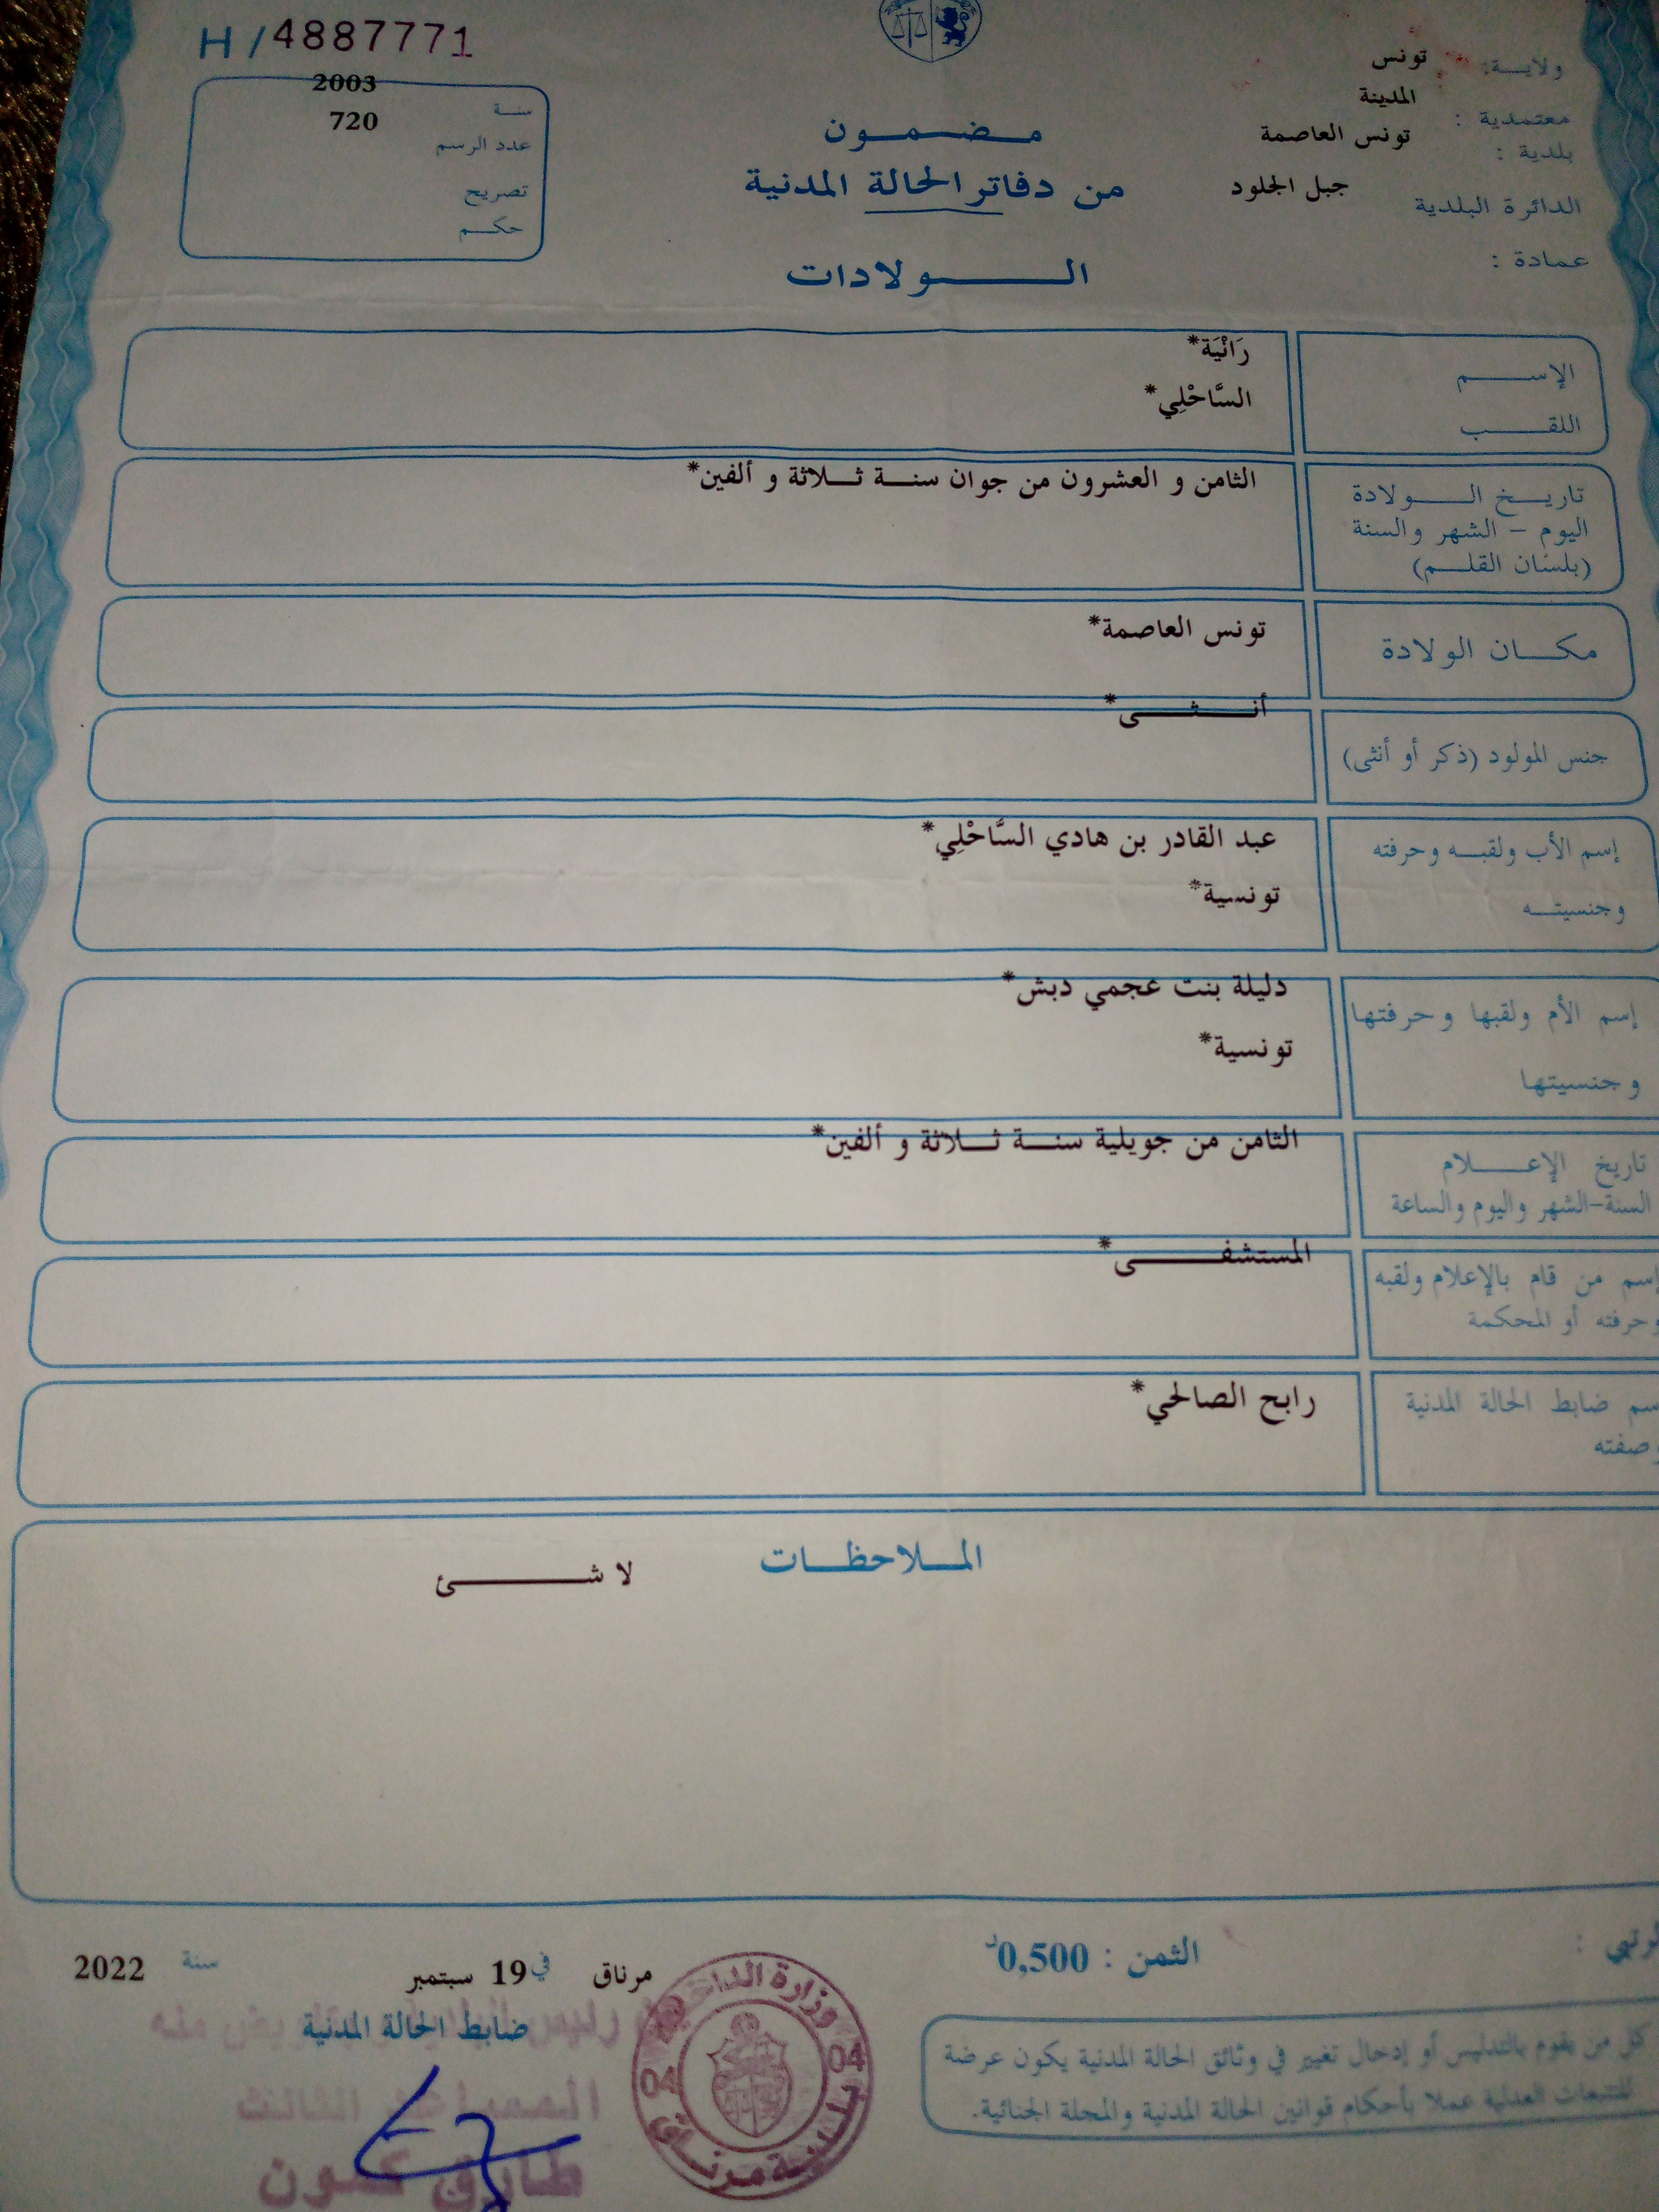 H/4887771
ولايـــة: تونس
معتمدية : المدينة
بلدية : تونس العاصمة
الدائرة البلدية جبل الجلود
عمادة :
سنـة 2003
عدد الرسم 720
تصريح
حكـم
مـضـمـون
من دفاتر الحالة المدنية
الـولادات
الإسـم رَانْيَة*
اللقـب السَّاحْلِي*
تاريـخ الـولادة الثامن و العشرون من جوان سنـة ثـلاثة و ألفين*
اليوم - الشهر والسنة
(بلسان القلـم)
مكـان الولادة تونس العاصمة*
جنس المولود (ذكر أو أنثى) أنـثـى*
إسم الأب ولقبـه وحرفته عبد القادر بن هادي السَّاحْلِي*
وجنسيتـه تونسية*
إسم الأم ولقبها وحرفتها دليلة بنت عجمي دبش*
وجنسيتها تونسية*
تاريخ الإعـلام الثامن من جويلية سنـة ثـلاثة و ألفين*
السنة-الشهر واليوم والساعة
إسم من قام بالإعلام ولقبه المستشفـى*
وحرفته أو المحكمة
سم ضابط الحالة المدنية رابح الصالحي*
وصفته
المـلاحظـات
لا شـئ
الثمن : 0,500د
مرناق في 19 سبتمبر سنة 2022
ضابط الحالة المدنية
كل من يقوم بالتدليس أو إدخال تغيير في وثائق الحالة المدنية يكون عرضة
للتتبعات العدلية عملا بأحكام قوانين الحالة المدنية والمجلة الجنائية.
وزارة الداخلية
04 04
بلدية مرناق
طارق كمون